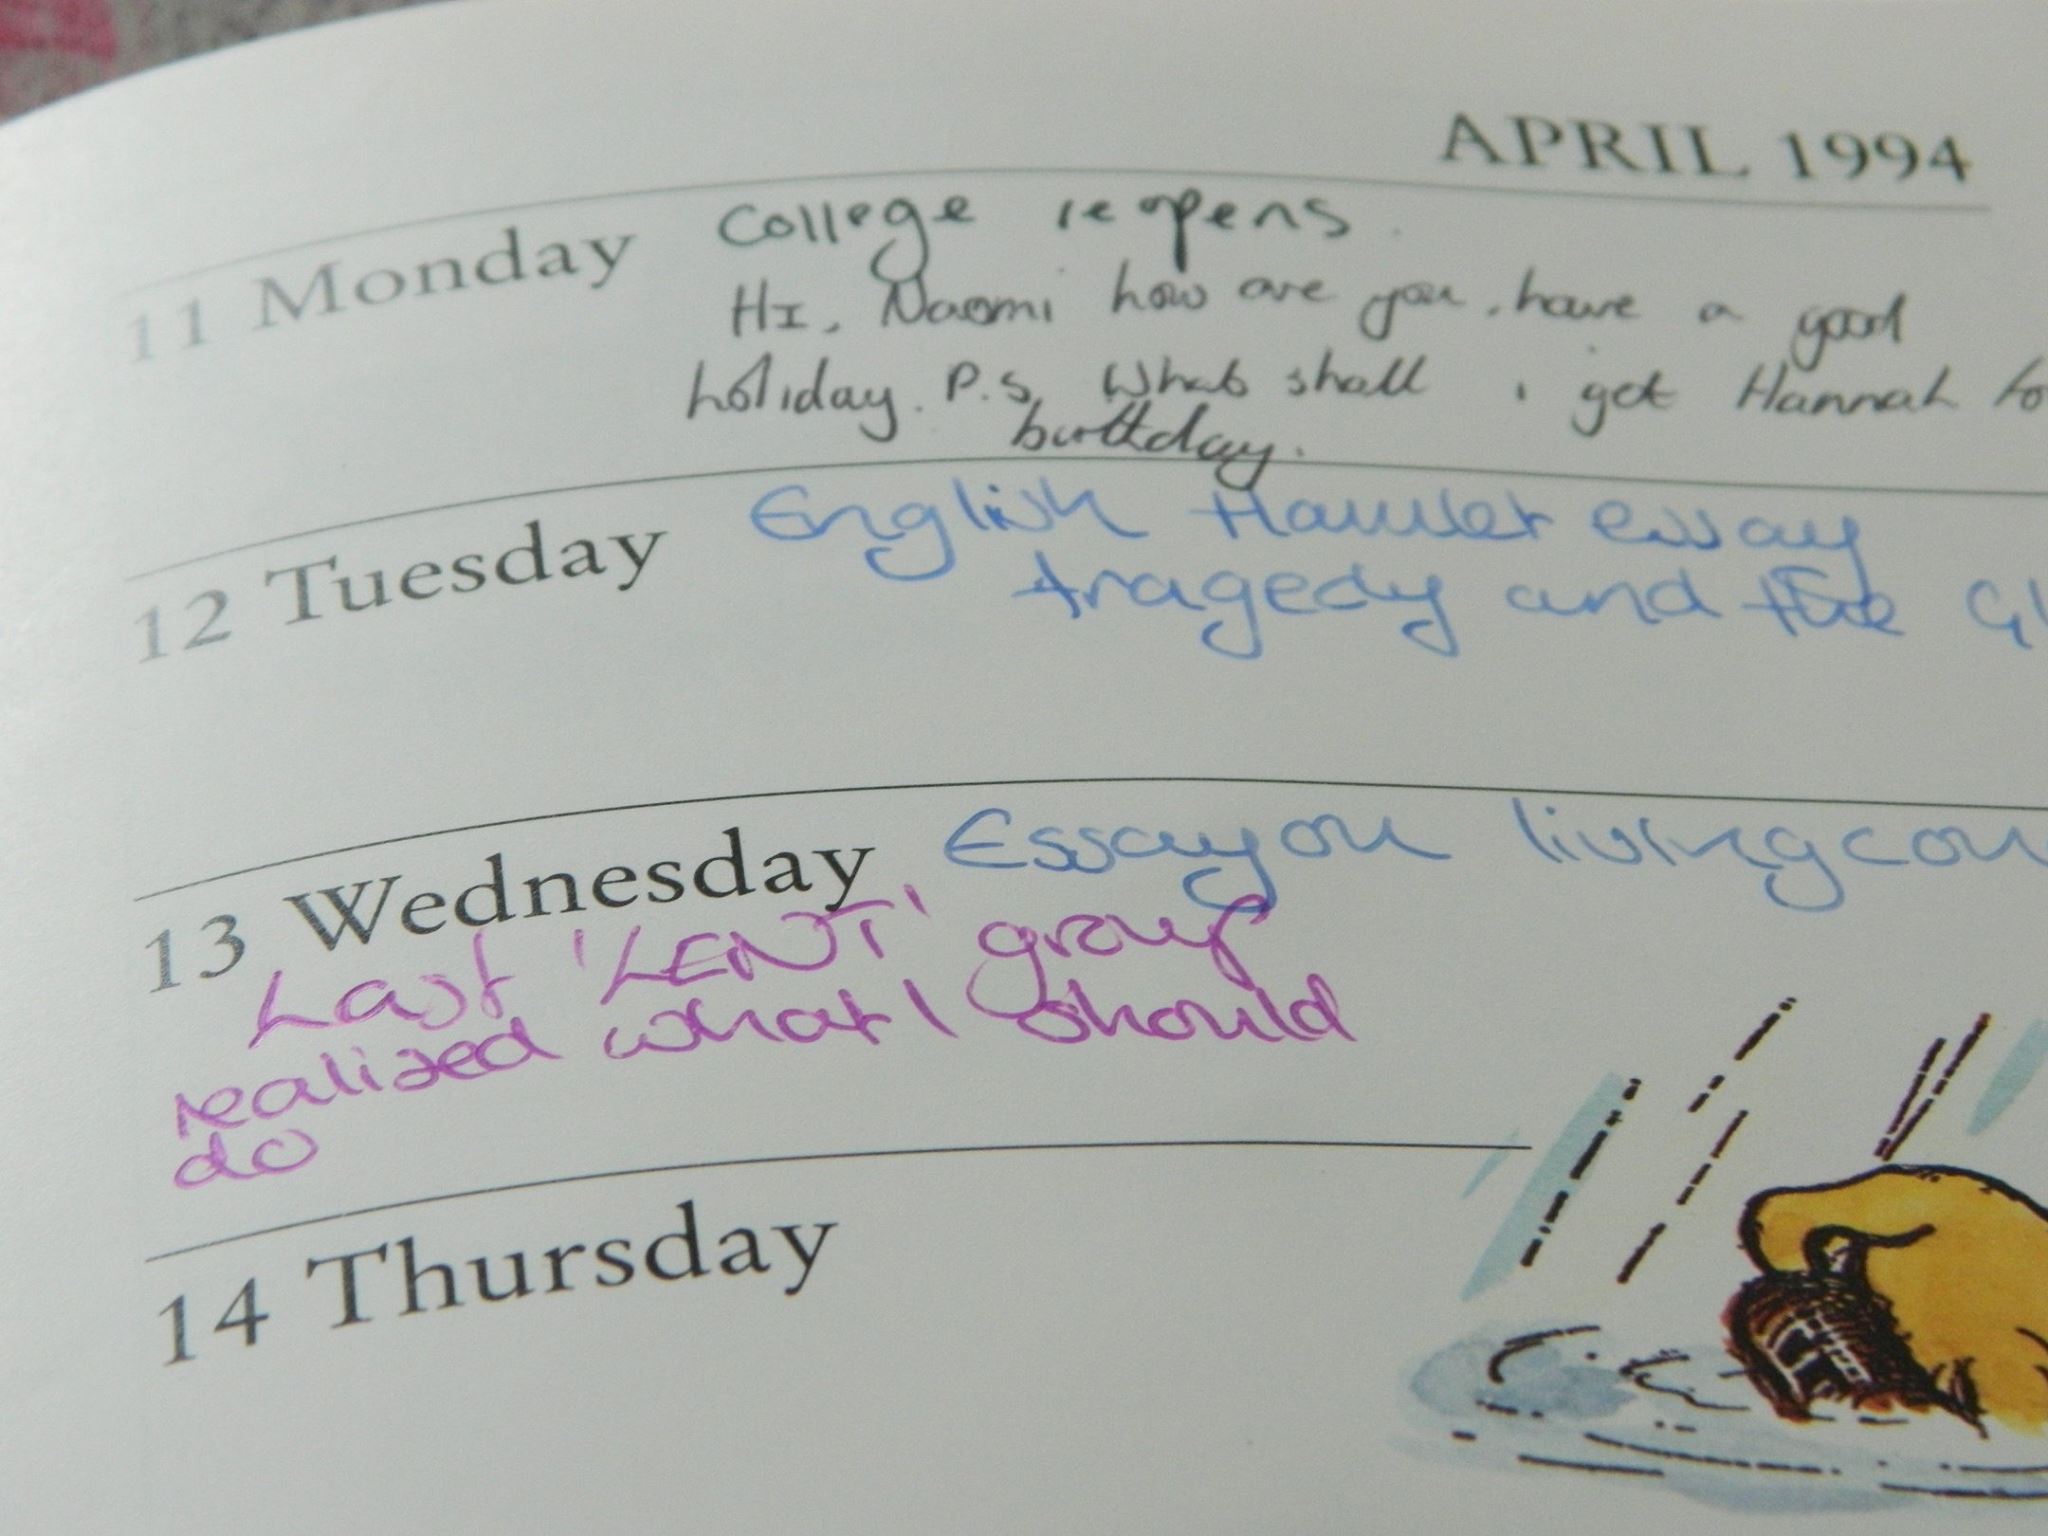 APRIL 1994
11 Monday College reopens.
HI, Naomi how are you, have a good
holiday. P.S. What shall i get Hannah
birthday.
12 Tuesday English Hamlet essay
tragedy and the
13 Wednesday Essay on living
Last 'LENT' group
realized what I should
do
14 Thursday